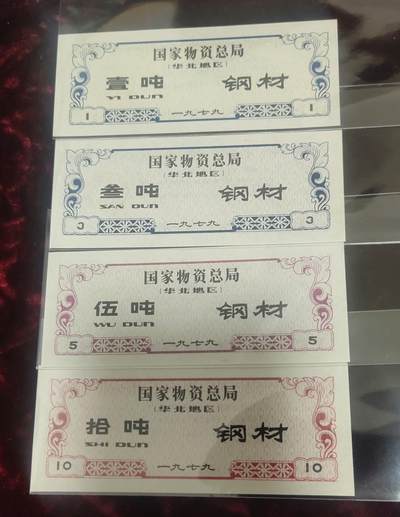 国家物资总局
(华北地区)
壹吨 钢材
YI DUN
1 一九七九 1
国家物资总局
(华北地区)
叁吨 钢材
SAN DUN
3 一九七九 3
国家物资总局
(华北地区)
伍吨 钢材
WU DUN
5 一九七九 5
国家物资总局
(华北地区)
拾吨 钢材
SHI DUN
10 一九七九 10